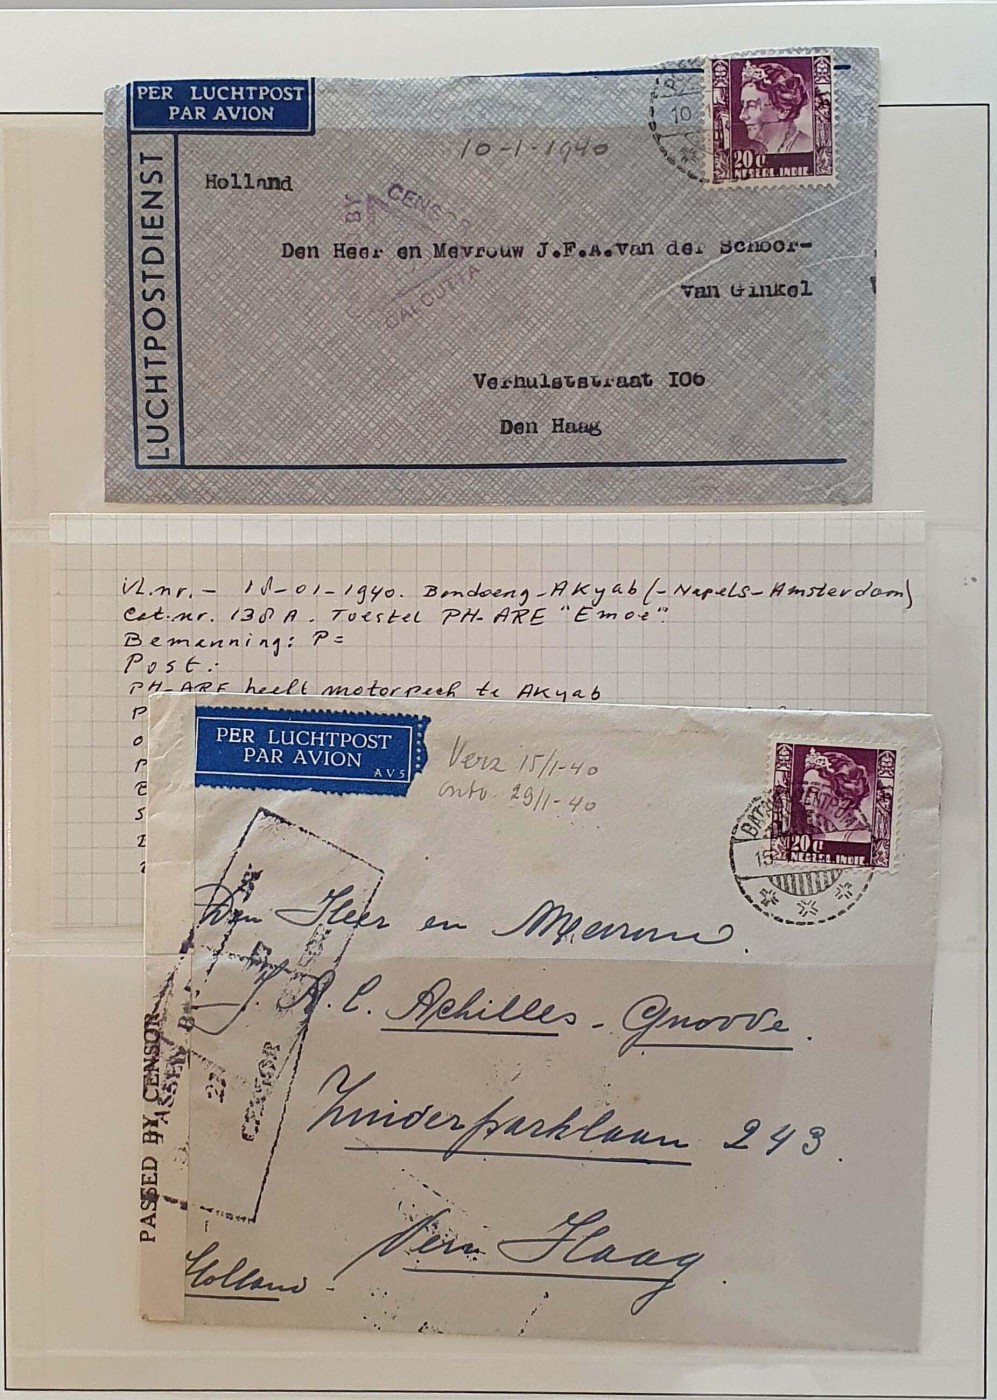 PER LUCHTPOST
PAR AVION
LUCHTPOSTDIENST
10
20 c
NEDERL. INDIE
10-1-1940
Holland
BY
CENSOR
CALCUTTA
Den Heer en Mevrouw J.F.A.van der Schoor-
van Ginkel
Verhulststraat I06
Den Haag
Vl.nr. - 18-01-1940. Bandoeng-Akyab (-Napels-Amsterdam)
Cat.nr. 138A. Toestel PH-ARE "Emoe".
Bemanning: P=
Post:
PH-ARE heeft motorpech te Akyab
PER LUCHTPOST
PAR AVION
AVS
Verz 15/1-40
ontv. 29/1-40
BAT CENTRUM
15
20 c
NEDERL. INDIE
Den Heer en Mevrouw.
A. C. Achilles - Gnodde.
Zuiderparklaan 243.
Den Haag
Holland -
PASSED BY CENSOR
PASSED BY
22
CENSOR